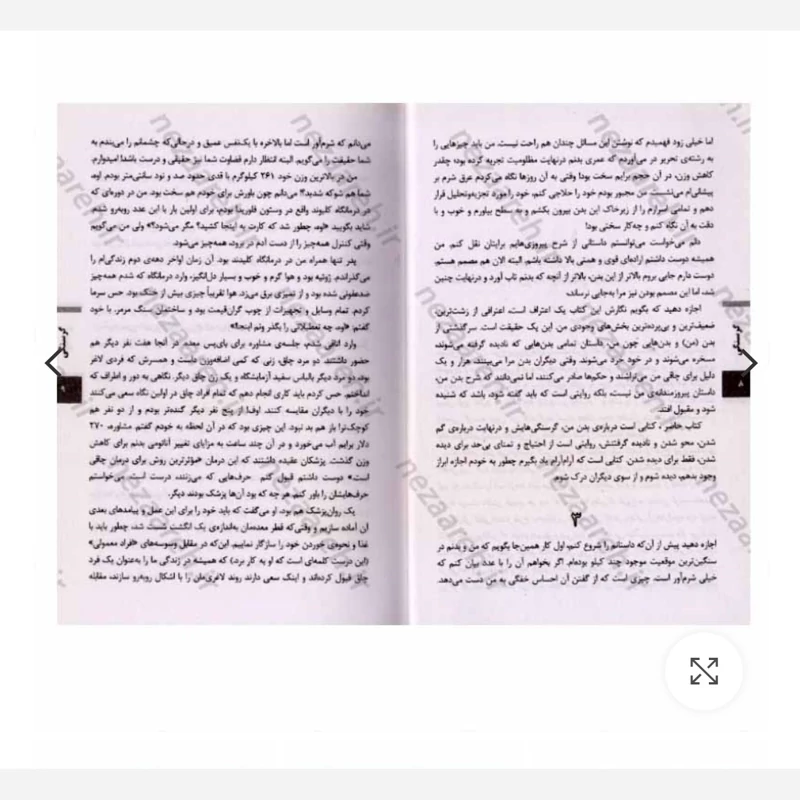 اما خیلی زود فهمیدم که نوشتن این مسائل چندان هم راحت نیست. من باید چیزهایی را
به رشته‌ی تحریر در می‌آوردم که عمری بدنم درنهایت مظلومیت تجربه کرده بود؛ چقدر
کاهش وزن، در آن حجم برایم سخت بود! وقتی به آن روزها نگاه می‌کردم عرق شرم بر
پیشانی‌ام می‌نشست. مجبور بودم خود را حلاجی کنم، خود را مورد تجزیه‌وتحلیل قرار
دهم و تمامی اسرارم را از زیرخاک این بدن بیرون بکشم و به سطح بیاورم و خوب و با
دقت به آن نگاه کنم و چه‌کار سختی بود!
دلم می‌خواست می‌توانستم داستانی از شرح پیروزی‌هایم برایتان نقل کنم. من
همیشه دوست داشتم اراده‌ای قوی و همتی بالا داشته باشم. البته الان هم مصمم هستم.
دوست دارم جایی بروم بالاتر از این بدن، بالاتر از آنچه که بدنم تاب آورد و درنهایت چنین
شد، اما این مصمم بودن نیز مرا به‌جایی نرساند.
اجازه دهید که بگویم نگارش این کتاب یک اعتراف است، اعترافی از زشت‌ترین،
ضعیف‌ترین و بی‌پرده‌ترین بخش‌های وجودی من. این یک حقیقت است. سرگذشتی از
بدن (من) و بدن‌هایی چون من، داستان تمامی بدن‌هایی که نادیده گرفته می‌شوند،
مسخره می‌شوند و در خود خرد می‌شوند. وقتی دیگران بدن مرا می‌بینند، هزار و یک
دلیل برای چاقی من می‌تراشند و حکم‌ها صادر می‌کنند، اما نمی‌دانند که شرح بدن من،
داستان پیروزمندانه‌ی من نیست، بلکه روایتی است که باید گفته شود، باشد که شنیده
شود و مقبول افتد.
کتاب حاضر، کتابی است درباره‌ی بدن من، گرسنگی‌هایش و درنهایت درباره‌ی گم
شدن، محو شدن و نادیده گرفتنش، روایتی است از احتیاج و تمنای بی‌حد برای دیده
شدن، فقط برای دیده شدن. کتابی است که آرام‌آرام یاد بگیرم چطور به خودم اجازه ابراز
وجود بدهم، دیده شوم و از سوی دیگران درک شوم.
۳
اجازه دهید پیش از آن‌که داستانم را شروع کنم، اول کار همین‌جا بگویم که من و بدنم در
سنگین‌ترین موقعیت موجود چند کیلو بوده‌ام. اگر بخواهم آن را با عدد بیان کنم که
خیلی شرم‌آور است. چیزی است که از گفتن آن احساس خفگی به من دست می‌دهد.
گرسنگی
۸
می‌دانم که شرم‌آور است اما بالاخره با یک‌نفس عمیق و درحالی‌که چشمانم را می‌بندم به
شما حقیقت را می‌گویم. البته انتظار دارم قضاوت شما نیز حقیقی و درست باشد! امیدوارم.
من در بالاترین وزن خود ۲۶۱ کیلوگرم با قدی حدود صد و نود سانتی‌متر بودم. اوه،
شما هم شوکه شدید؟ می‌دانم چون باورش برای خودم هم سخت بود. من در دوره‌ای که
در درمانگاه کلیولند واقع در وستون فلوریدا بودم، برای اولین بار با این عدد روبه‌رو شدم.
شاید بگویید «اوه، چطور شد که کارت به اینجا کشید؟ مگر می‌شود؟» ولی من می‌گویم
وقتی کنترل همه‌چیز را از دست آدم در برود، همه‌چیز می‌شود.
پدر تنها همراه من در درمانگاه کلیولند بود. آن زمان اواخر دهه‌ی دوم زندگی‌ام را
می‌گذراندم. ژوئیه بود و هوا گرم و خوب و بسیار دل‌انگیز. وارد درمانگاه که شدم همه‌چیز
ضدعفونی شده بود و از تمیزی برق می‌زد. هوا تقریباً چیزی بیش از خنک بود. حس سرما
کردم. تمام وسایل و تجهیزات از چوب گران‌قیمت بود و ساختمان سنگ مرمر. با خود
گفتم: «اوه، چه تعطیلاتی را بگذر ونم اینجا!»
وارد اتاقی شدم، جلسه‌ی مشاوره برای بای‌پس معده. در آنجا هفت نفر دیگر هم
حضور داشتند. دو مرد چاق، زنی که کمی اضافه‌وزن داشت و همسرش که فردی لاغر
بود، دو مرد دیگر بالباس سفید آزمایشگاه و یک زن چاق دیگر. نگاهی به دور و اطراف که
انداختم، حس کردم باید کاری انجام دهم که تمام افراد چاق در اولین نگاه سعی می‌کنند
خود را با دیگران مقایسه کنند. اوف! از پنج نفر دیگر گنده‌تر بودم و از دو نفر هم
کوچک‌تر! باز هم بد نبود. این چیزی بود که در آن لحظه به خودم گفتم. مشاوره، ۲۷۰
دلار برایم آب می‌خورد و در آن چند ساعت به مزایای تغییر آناتومی بدنم برای کاهش
وزن گذشت. پزشکان عقیده داشتند که این درمان «مؤثرترین روش برای درمان چاقی
است.» دوست داشتم قبول کنم. حرف‌هایی که می‌زدند، درست است. می‌خواستم
حرف‌هایشان را باور کنم، هر چه که بود آن‌ها پزشک بودند دیگر.
یک روان‌پزشک هم بود، او می‌گفت که باید خود را برای این عمل و پیامدهای بعدی
آن آماده سازیم و وقتی‌که قطر معده‌مان به‌اندازه‌ی یک انگشت شست شد، چطور باید با
غذا و نحوه‌ی خوردن خود را سازگار نماییم. این‌که در مقابل وسوسه‌های «افراد معمولی»
(این درست کلمه‌ای است که او به کار برد.) که همیشه در زندگی ما را به‌عنوان یک فرد
چاق قبول کرده‌اند و اینک سعی دارند روند لاغری‌مان را با اشکال روبه‌رو سازند، مقابله
گرسنگی
۹
nezaareh.ir